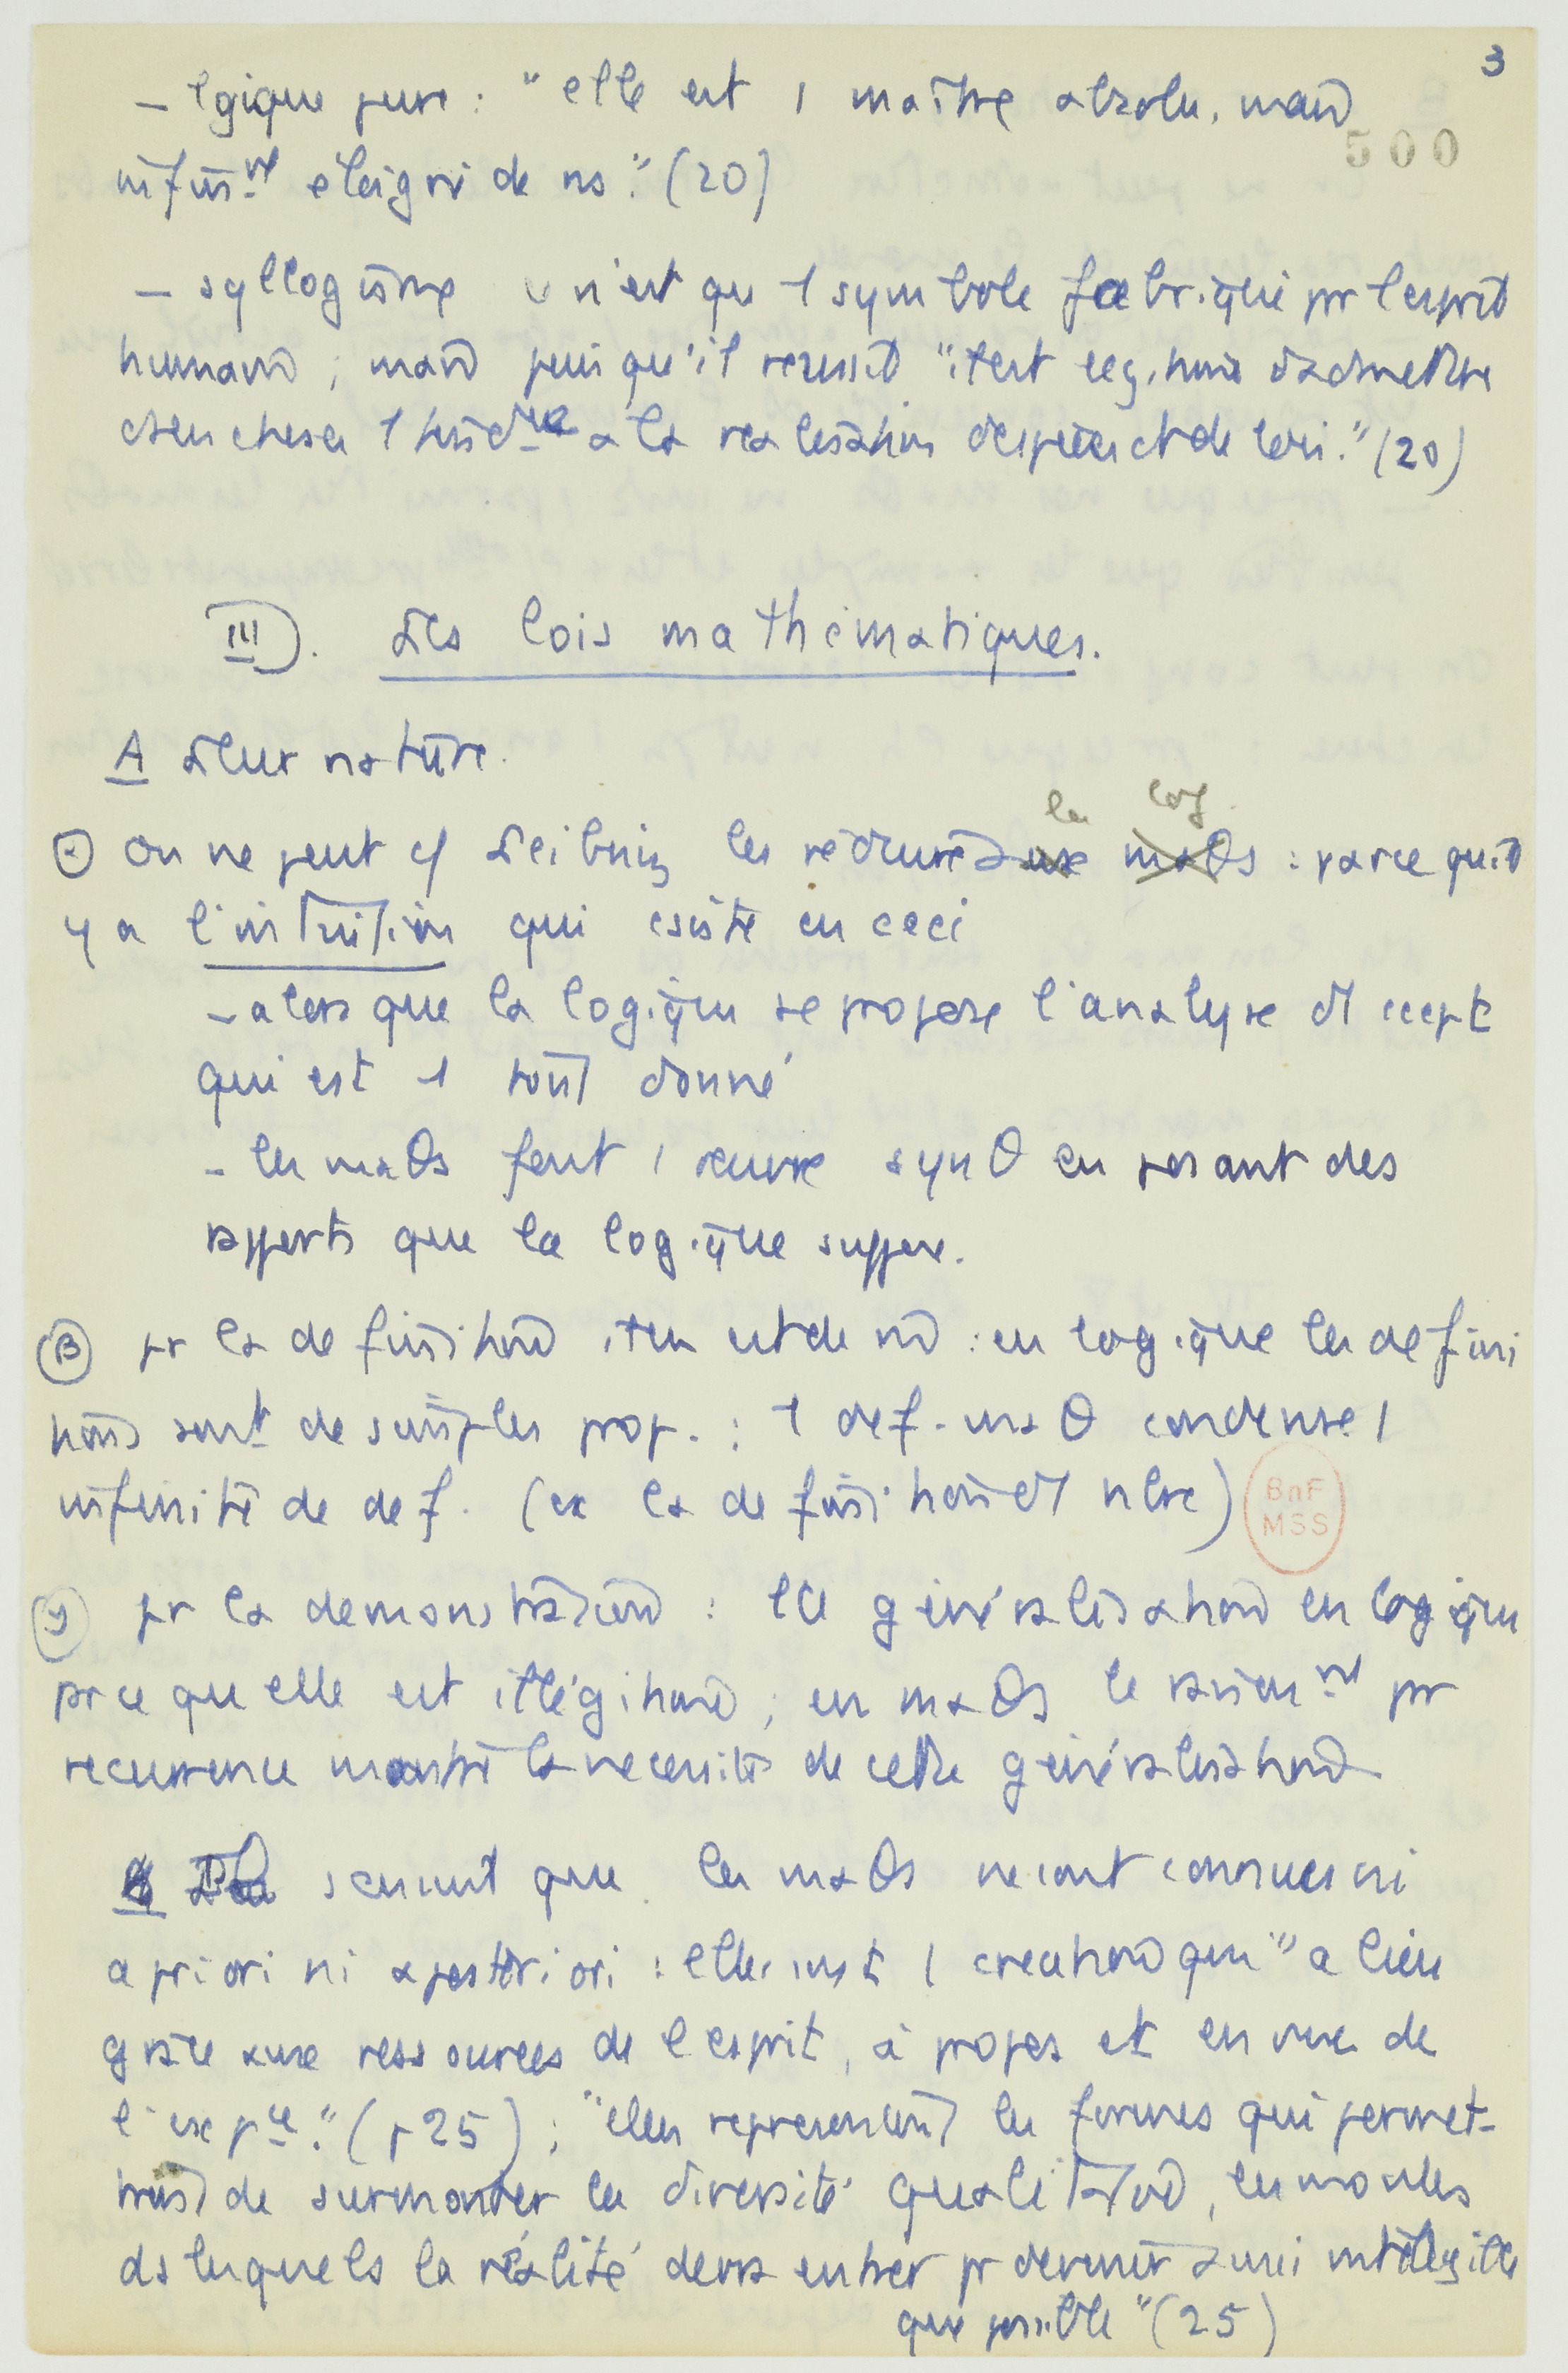 3
500
– lgique pure : "elle est 1 maître absolu, mais
infinimt éloigné de ns." (20)
– syllogisme n'est qu 1 symbole fabriqué pr l'esprit
humain ; mais puisqu'il réussit "il est légitime d'admettre
ds les choses 1 tendce à la réalisation d'espèces et de lois." (20)
III). Les lois mathématiques.
A Leur nature.
α on ne peut cf Leibniz les réduire à la log. : parce qu'il
y a l'intuition qui csiste en ceci
– alors que la logique se propose l'analyse d'1 ccept
qui est 1 tout donné
– les maθs font 1 œuvre synθ en posant des
rapports que la logique suppose.
β pr la définition il en est de m̂ : en logique les défini
tions sont de simples prop. : 1 def. maθ condense 1
infinité de def. (ex la définition d'1 nbre)
BnF
MSS
γ pr la démonstration : la généralisation en logique
prce qu elle est illégitime ; en maθs le raisonnmt pr
recurrence montre la nécessité de cette généralisation
s ensuit que les maθs ne sont connues ni
a priori ni a posteriori : elles sont 1 création qui "a lieu
grâce aux ressources de l'esprit, à propos et en vue de
l'expce." (p 25) ; "elles représentent les formes qui permet-
tront de surmonter la diversité qualitative, les moules
ds lesquels la réalité devra entrer pr devenir aussi intelligible
que possible" (25)